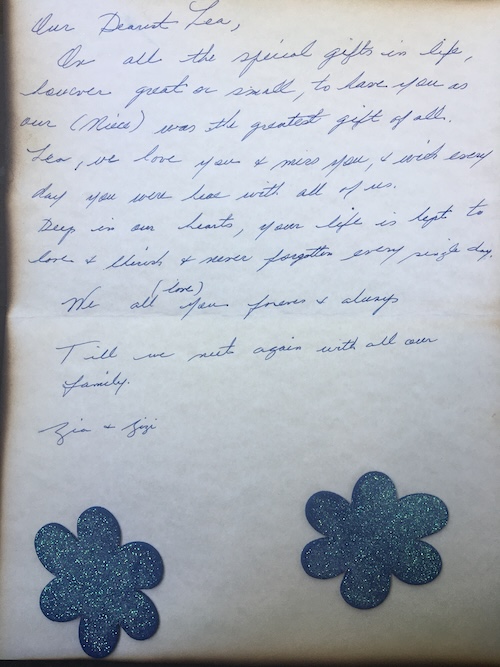 Our Dearest Lea,
On all the special gifts in life,
however great or small, to have you as
our (Niece) was the greatest gift of all.
Lea, we love you & miss you, & wish every
day you were here with all of us.
Deep in our hearts, your life is kept to
love & cherish & never forgotten every single day.
We all (love) you forever & always
Till we meet again with all our
family.
Zia & Zizi